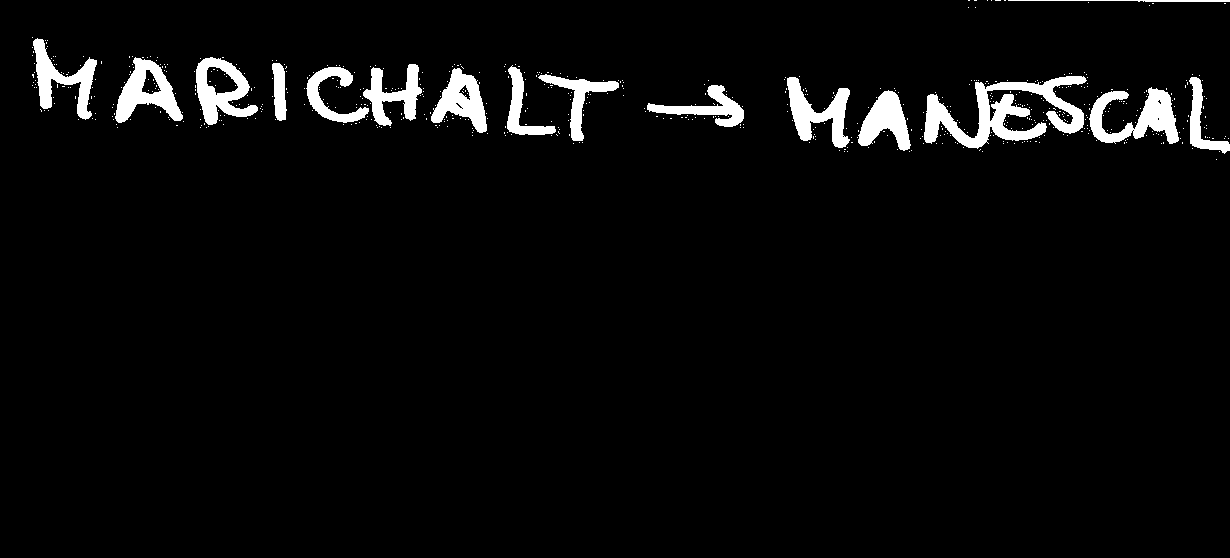 MARICHALT → MANESCAL